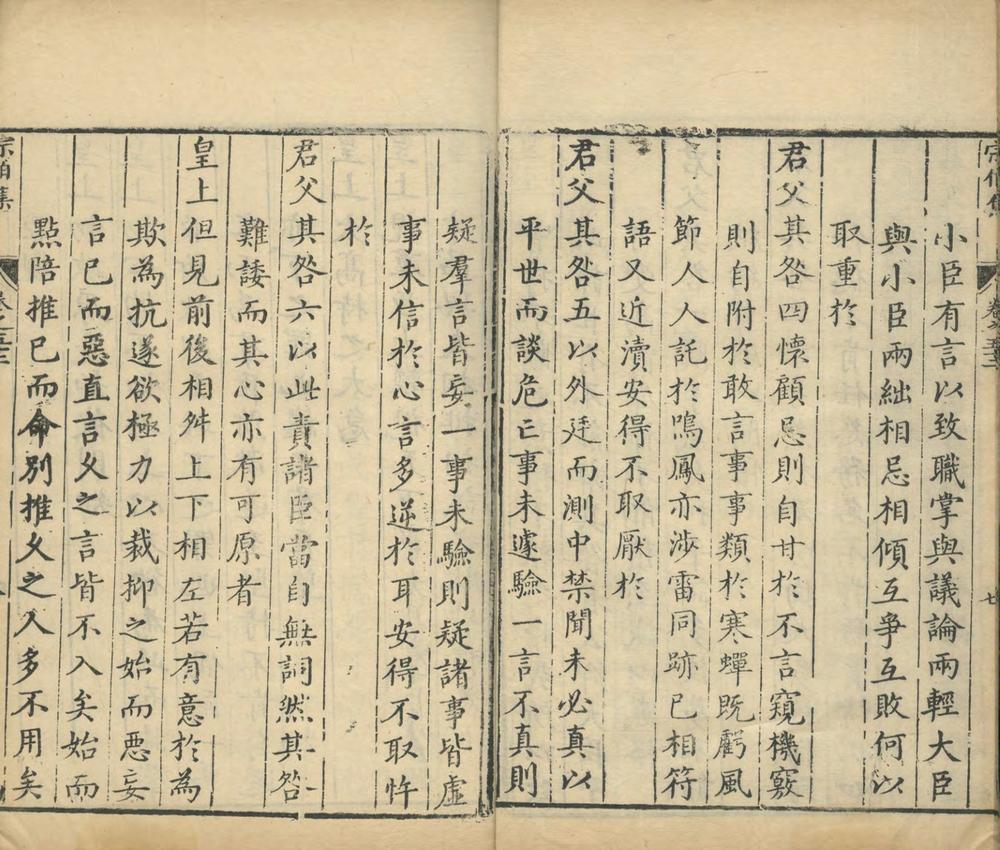 小臣有言以致職掌與議論兩輕大臣
與小臣兩絀相忌相傾互爭互敗何以
取重於
君父其咎四懷顧忌則自甘於不言窺機竅
則自附於敢言事事類於寒蟬既虧風
節人人託於鳴鳳亦涉雷同跡已相符
語又近瀆安得不取厭於
君父其咎五以外廷而測中禁聞未必真以
平世而談危亡事未遽驗一言不真則
疑羣言皆妄一事未驗則疑諸事皆虛
事未信於心言多逆於耳安得不取忤
於
君父其咎六以此責諸臣當自無詞然其咎
難諉而其心亦有可原者
皇上但見前後相舛上下相左若有意於為
欺為抗遂欲極力以裁抑之始而惡妄
言已而惡直言久之言皆不入矣始而
點陪推已而命別推久之人多不用矣